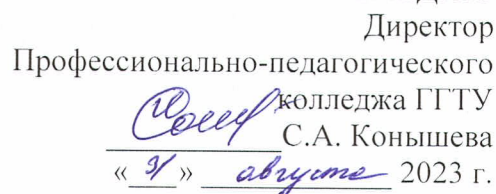 Директор
Профессионально-педагогического
колледжа ГГТУ
С.А. Конышева
«31» августа 2023 г.